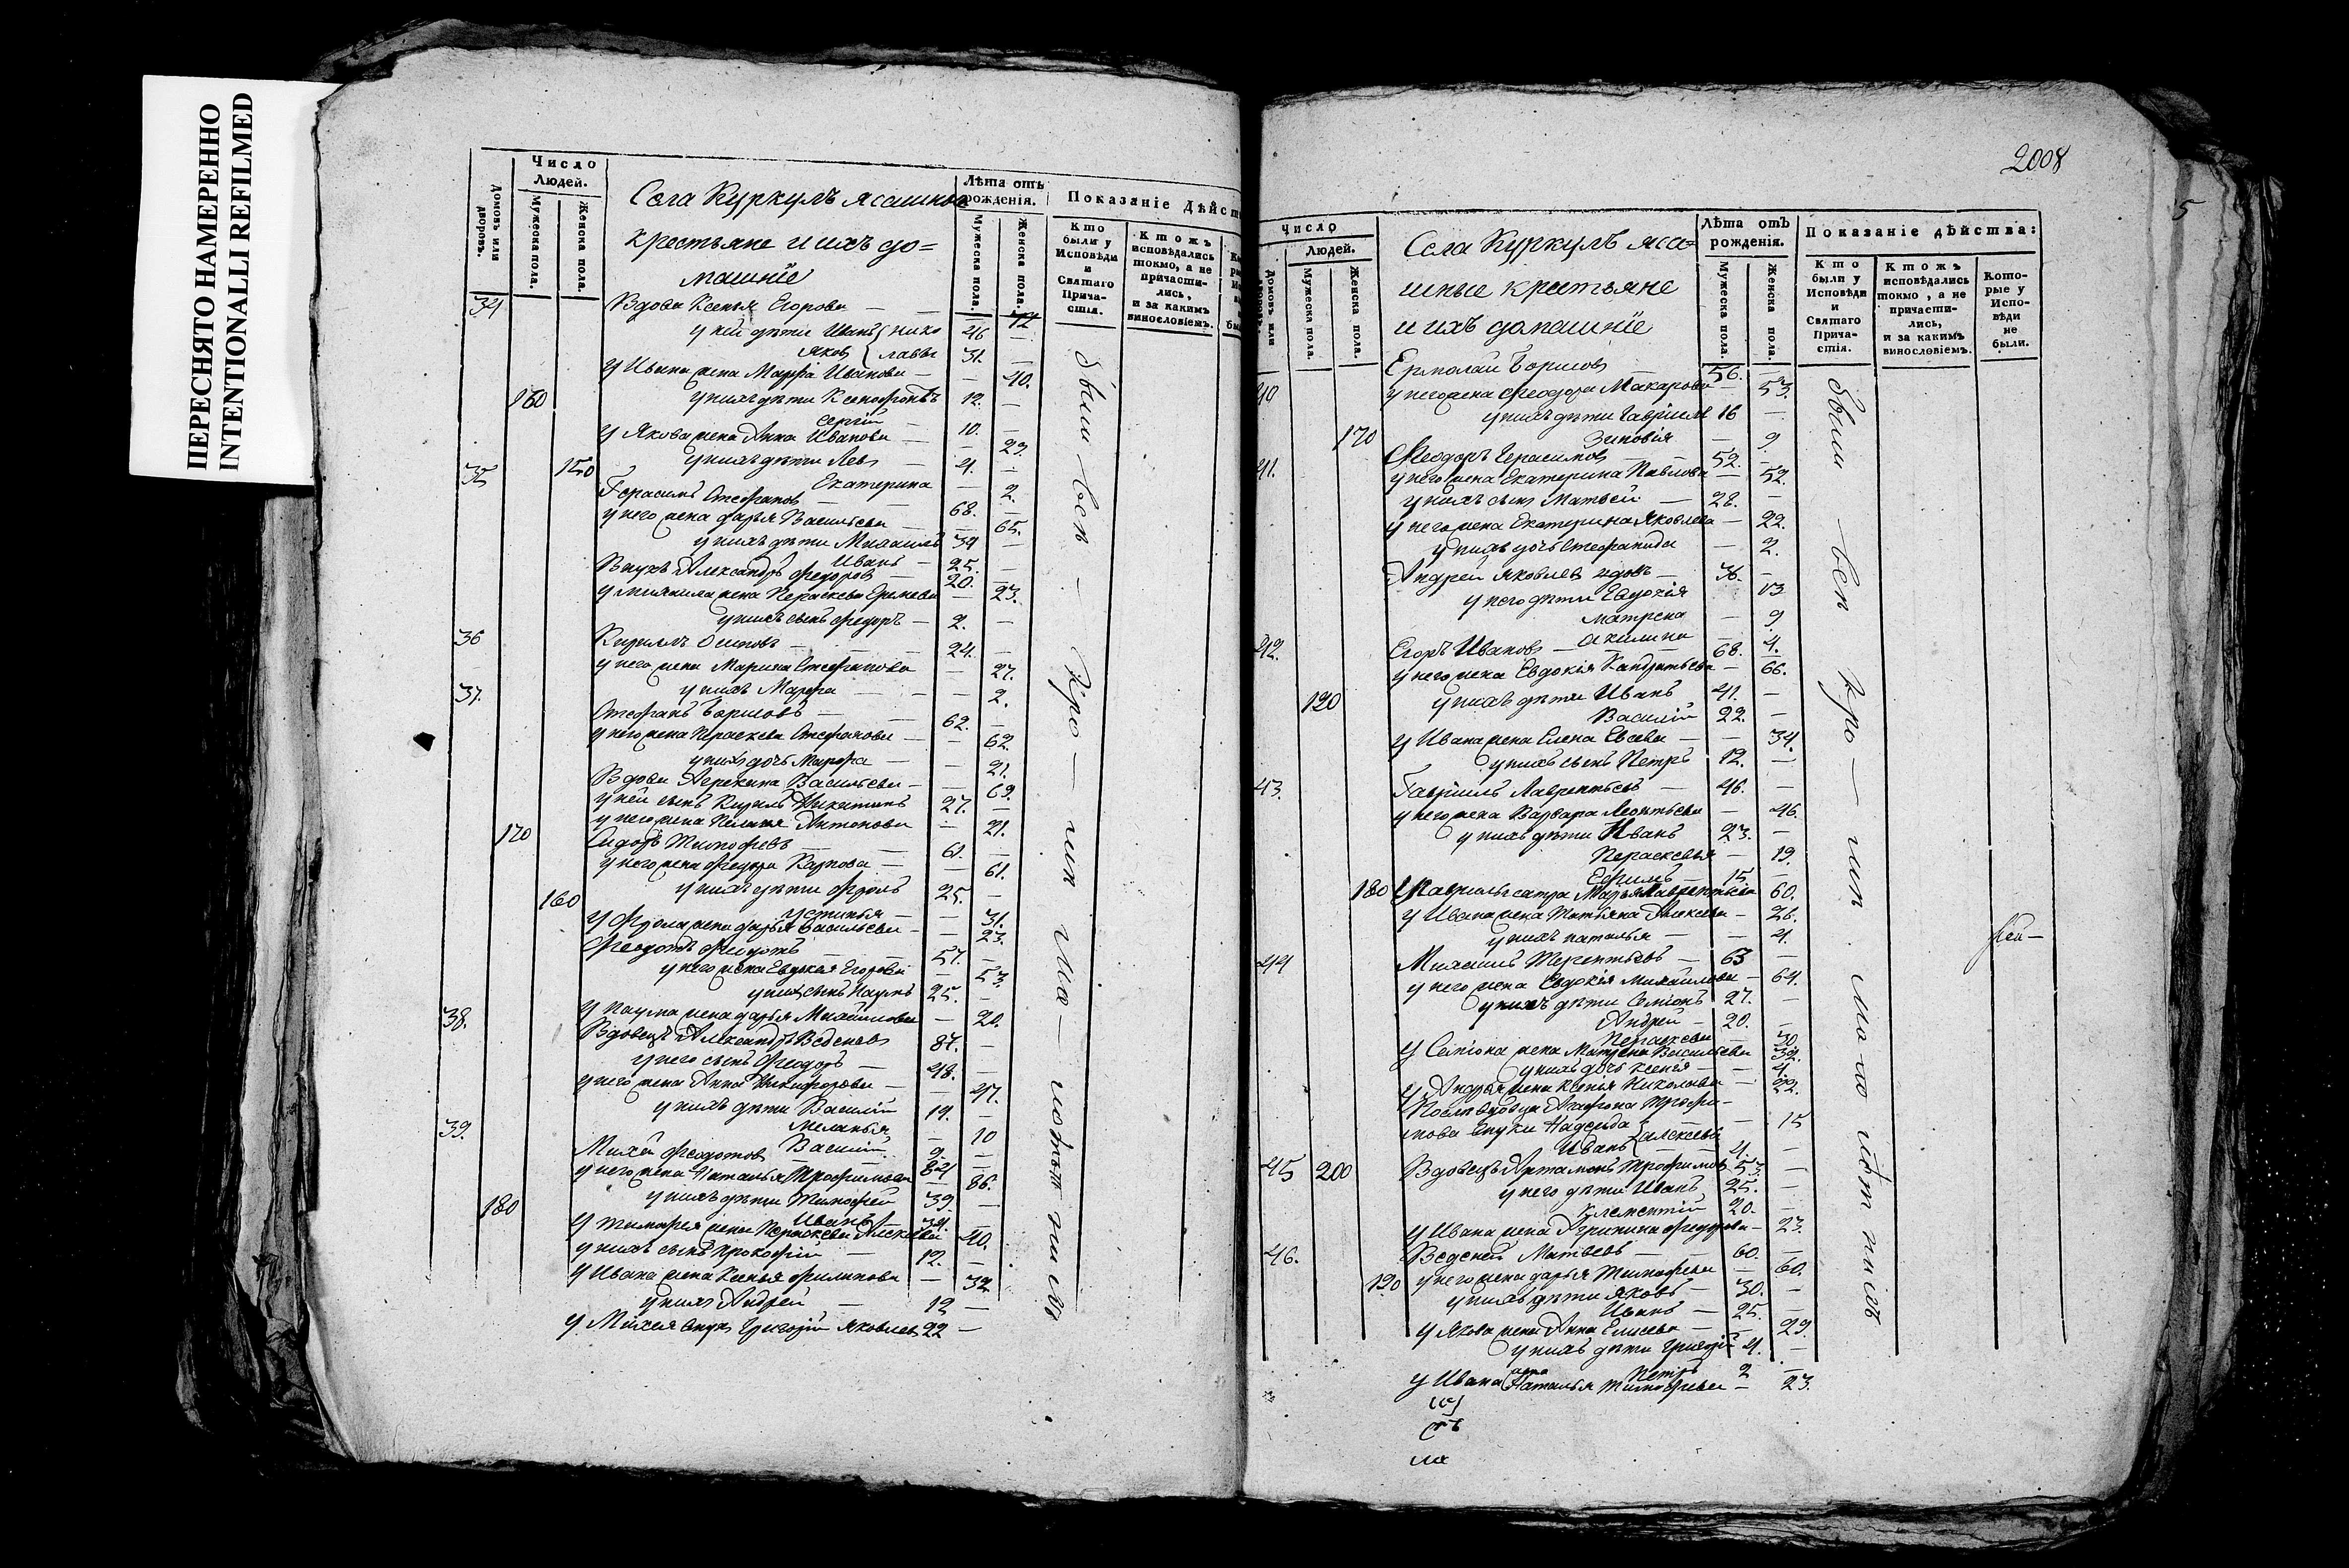 ПЕРЕСНЯТО НАМЕРЕННО
INTENTIONALLI REFILMED
Число
Людей.
Домовъ или дворовъ.
Мужеска пола.
Женска пола.
Села Куркулъ ясашные
крестьяне и ихъ до=
машніе
Лѣта отъ рожденія.
Мужеска пола.
Женска пола.
Показаніе Дѣйст
Кто были у Исповѣди и Святаго Прича-стія.
Ктожъ исповѣдались токмо, а не причасти-лись, и за какимъ винословіемъ.
34 Вдова Ксенья Егорова — 72
у ней дѣти Иванъ 46 —
Яковъ 31. —
у Ивана жена Марфа Иванова — — 40.
160 у нихъ дѣти Ксенофонтъ 12. —
Сергій 10. —
у Якова жена Анна Иванова — 23.
у нихъ дѣти Левъ — 4. —
150 Екатерина — 2.
35 Герасимъ Стефановъ — 68. —
у него жена Дарья Васильева — — 65.
у нихъ дѣти Михаилъ 39 —
Иванъ — 25. —
Внукъ Александръ Федоровъ — 20. —
у Михаила жена Пераскева Еремеева — 23.
у нихъ сынъ Федоръ — 2. —
36 Кирилъ Осиповъ — 24. —
у него жена Марина Стефанова — 27.
у нихъ Марфа — — 2.
37. Стефанъ Борисовъ — 62. —
у него жена Пераскева Стефанова — — 62.
у нихъ дочь Марфа — — 21.
Вдова Агрекина Васильева — — 69.
у ней сынъ Кирилъ Никитинъ 27. —
у него жена Пелагея Антонова — 21.
170 Сидоръ Тимофеевъ — 61. —
у него жена Федора Карпова — — 61.
у нихъ дѣти Фролъ 25. —
160 Устинья — — 31.
у Фрола жена Дарья Васильева — — 23.
Феодотъ — 57. —
у него жена Евдокея Егорова — 53
у нихъ сынъ Наумъ 25. —
у Наума жена Дарья Михайлова — 20.
38. Вдовецъ Александръ Веденеевъ 87. —
у него сынъ Феодоръ — 48. —
у него жена Анна Никифорова — — 47.
у нихъ дѣти Василій 19. —
Меланья — 10
Василій 9. —
39. Михей Феодотовъ 84 —
у него жена Наталья Трофимова — 86.
у нихъ дѣти Тимофей 39. —
180 Иванъ 34. —
у Тимофея жена Пераскева Алексѣева 40.
у нихъ сынъ Прокофій — 12. —
у Ивана жена Ксенья Филипова — 32
у нихъ Андрей — 12 —
у Михея внукъ Григорій Яковлевъ 22 —
были вси
2008
5
Число
Людей.
Домовъ или
Мужеска пола.
Женска пола.
Села Куркулъ яса=
шные крестьяне
и ихъ домашніе
Лѣта отъ рожденія.
Мужеска пола.
Женска пола.
Показаніе дѣйства:
Кто были у Исповѣди и Святаго Прича-стія.
Ктожъ исповѣдались токмо, а не причасти-лись, и за какимъ винословіемъ.
Кото-рые у Испо-вѣди не были.
40 Ермолай Борисовъ 56. —
у него жена Феодора Макарова — 53.
у нихъ дѣти Гавріилъ 16 —
170 Зиновія — 9.
41. Феодоръ Герасимовъ — 52. —
у него жена Екатерина Павлова — 52.
у нихъ сынъ Матвей — 28. —
у него жена Екатерина Яковлева — 22.
у нихъ дочь Стефанида — 2.
Андрей Яковлевъ вдовъ — 36. —
у него дѣти Евдокія 13
Матрена — 9.
Акилина — 4.
42. Егоръ Ивановъ — 68. —
у него жена Евдокія Кандратьева — 66.
190 у нихъ дѣти Иванъ 41. —
Василій 22. —
у Ивана жена Елена Евсеева — — 34.
у нихъ сынъ Петръ 12. —
43. Гавріилъ Лаврентьевъ — 46. —
у него жена Варвара Леонтьева — 46.
у нихъ дѣти Иванъ 23. —
Пераскевья — 19.
Ефимъ — 15 —
180 у Гавриилы сестра Марья Лаврентьева 60.
у Ивана жена Татьяна Алексѣева — 26.
у нихъ Наталья — — 4.
44 Михаилъ Терентьевъ — 63 —
у него жена Евдокія Михайлова — 64.
у нихъ дѣти Семіонъ 27. —
Андрей — 20. —
Пераскева — 30.
у Семіона жена Матрена Васильева 32.
у нихъ дочь Ксенія — — 4.
у Андрея жена Ксенія Николаева — 22.
После вдовца Агафона Трофи-
мова внуки Надежда Алексѣевы — 15
Иванъ 4. —
45 200 Вдовецъ Артамонъ Трофимовъ 53. —
у него дѣти Иванъ 25. —
Клементій 20. —
у Ивана жена Агрипина Федорова — 23.
46. Веденей Матвеевъ — 60. —
190 у него жена Дарья Тимофеева — 60.
у нихъ дѣти Яковъ — 30. —
Иванъ — 25. —
у Якова жена Анна Елисеева — — 29.
у нихъ дѣти Григорій 4. —
Петръ 2 —
у Ивана жена Наталья Тимофеева — 23.
были вси